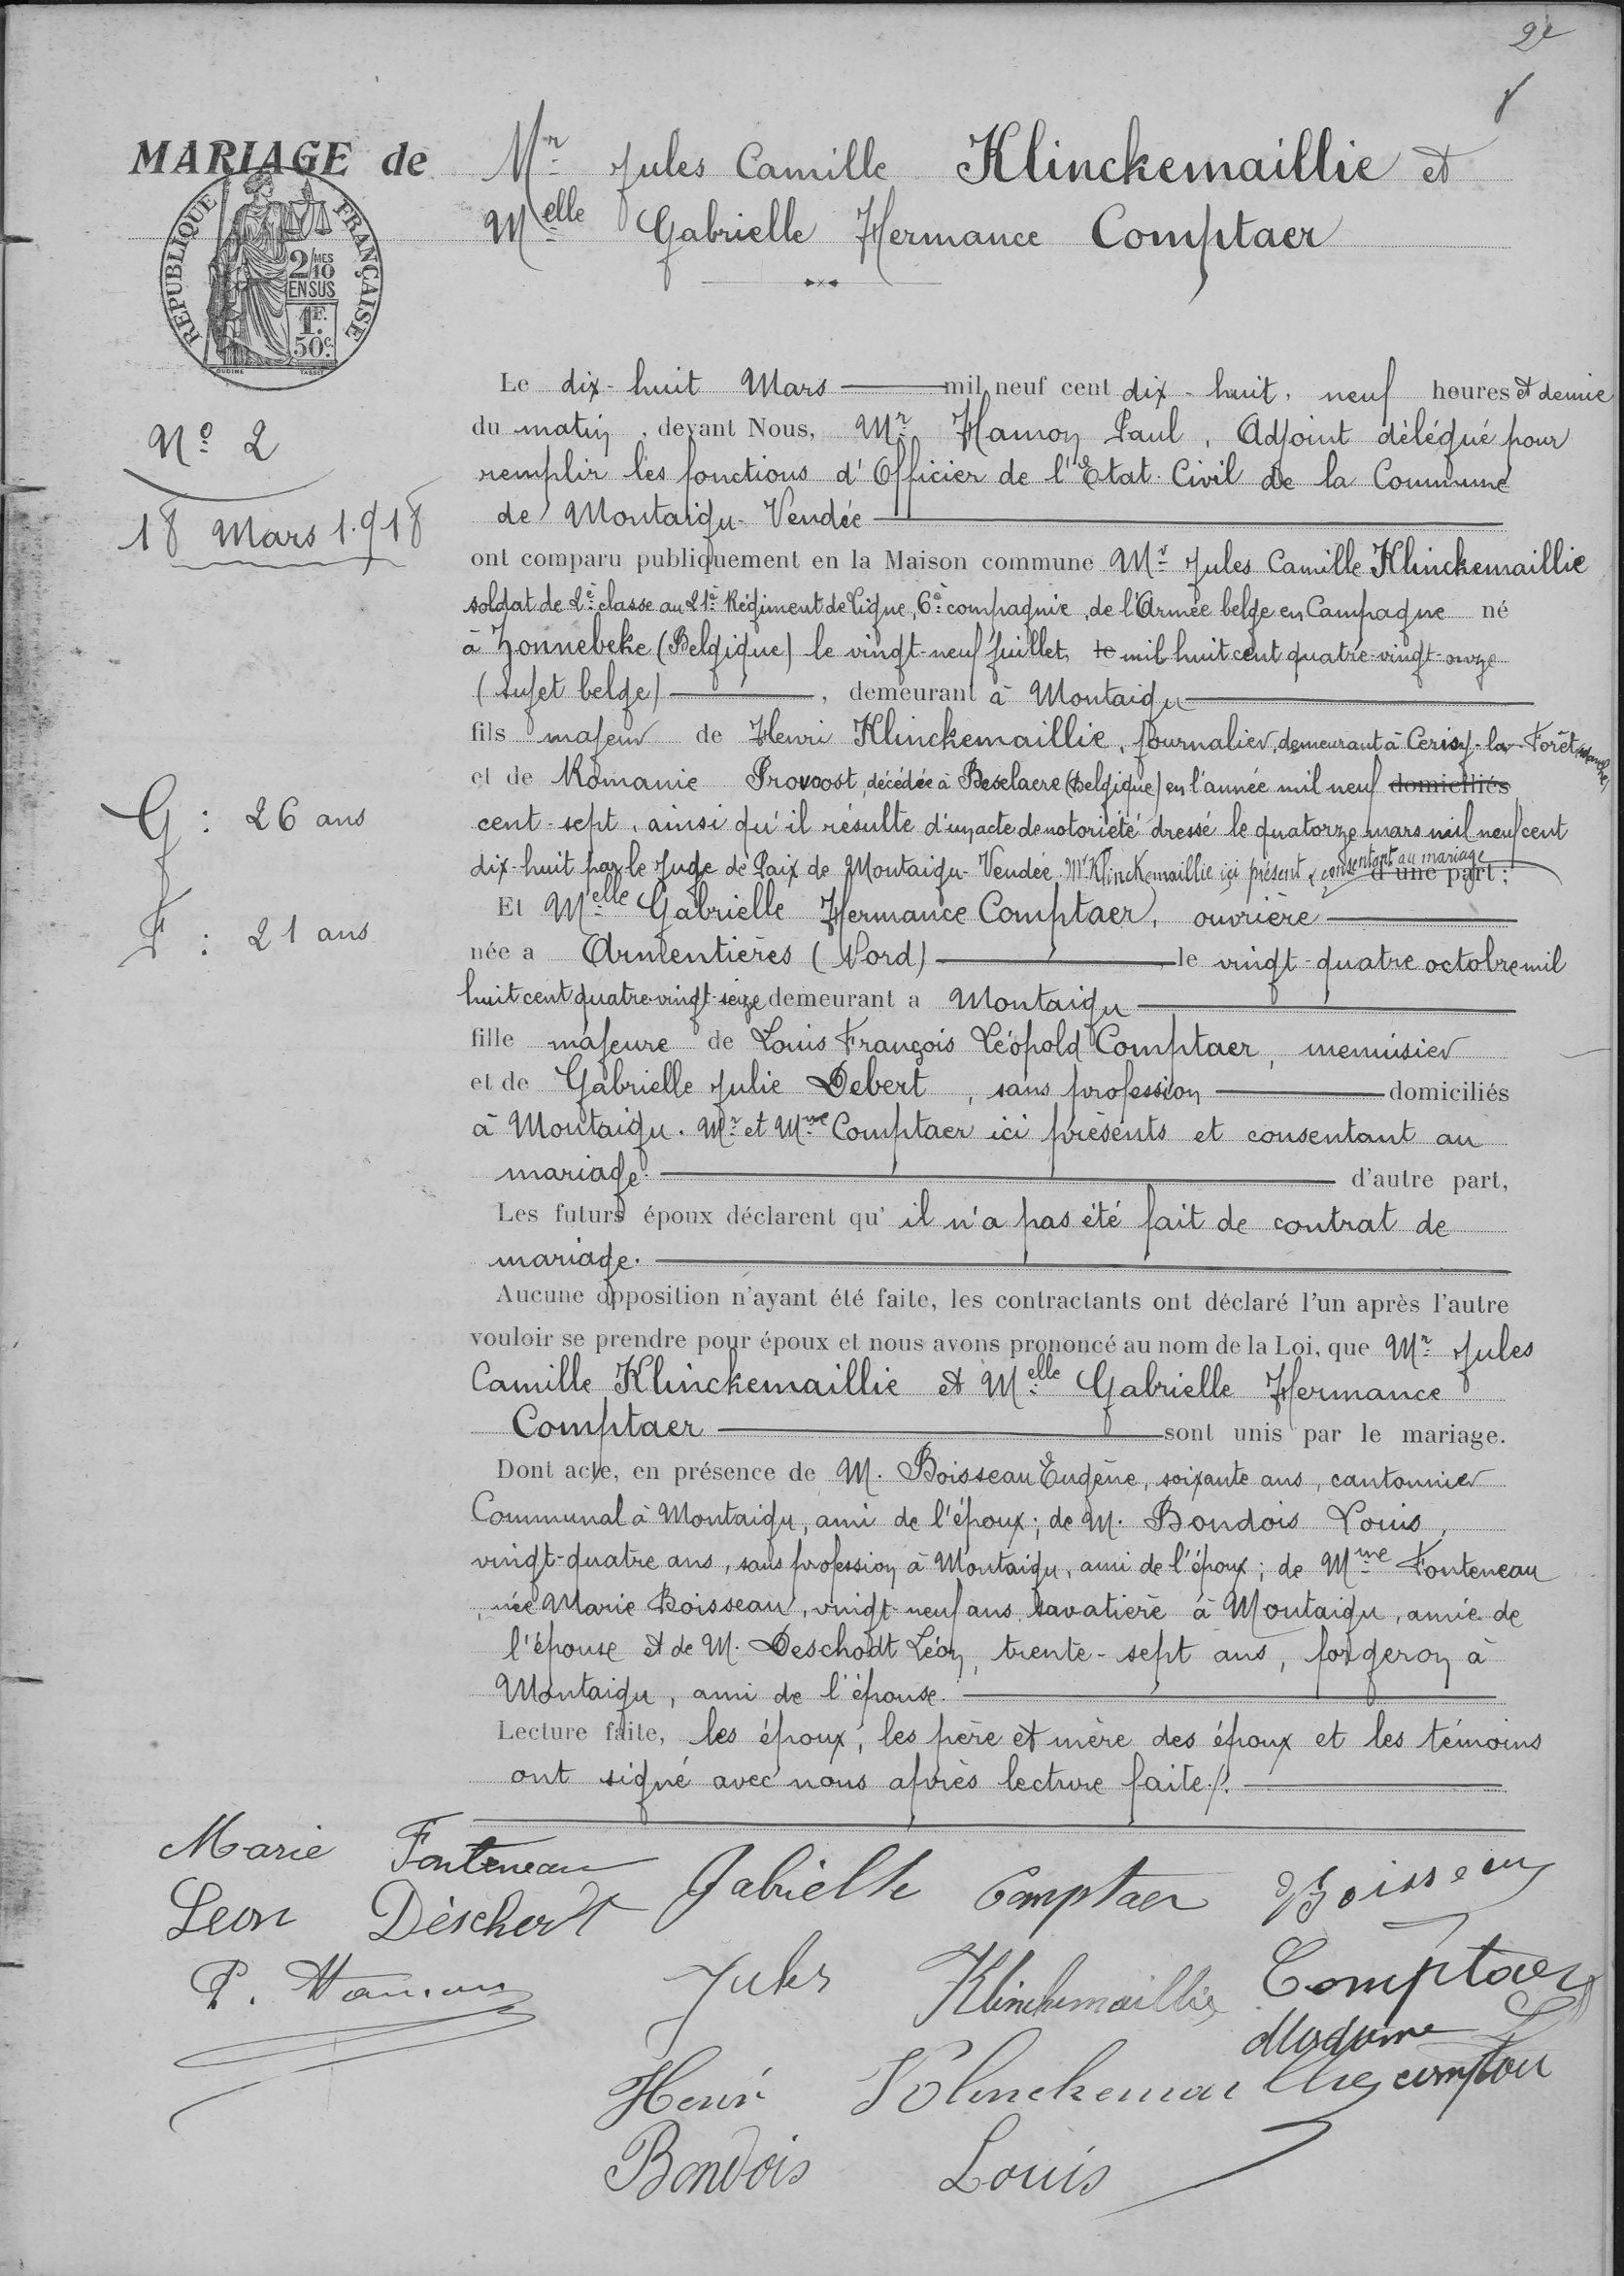 2e
MARIAGE de
Mr Jules Camille Klinckemaillie et
Melle Gabrielle Hermance Comptaer
REPUBLIQUE FRANÇAISE
2/10MES
EN SUS
1F.
50c.
OUDINÉ TASSET
No 2
18 Mars 1.918
Le dix-huit Mars mil neuf cent dix-huit, neuf heures et demie
du matin, devant Nous, Mr Hamon Paul, Adjoint délégué pour
remplir les fonctions d'Officier de l'Etat-Civil de la Commune
de Montaigu-Vendée
ont comparu publiquement en la Maison commune Mr Jules Camille Klinckemaillie
soldat de 2e classe au 21e Régiment de Ligne, 6e compagnie, de l'Armée belge en Campagne né
à Zonnebeke (Belgique) le vingt-neuf juillet, le mil huit cent quatre-vingt-onze
(sujet belge), demeurant à Montaigu
fils majeur de Henri Klinckemaillie, journalier, demeurant à Cerisy-la-Forêt (Manche)
et de Romanie Provoost, décédée à Beselaere (Belgique) en l'année mil neuf domiciliés
G : 26 ans
cent-sept, ainsi qu'il résulte d'un acte de notoriété dressé le quatorze mars mil neuf cent
dix-huit par le Juge de Paix de Montaigu-Vendée. Mr Klinckemaillie ici présent & consentant au mariage d'une part ;
Et Melle Gabrielle Hermance Comptaer, ouvrière
F : 21 ans
née a Armentières (Nord) le vingt-quatre octobre mil
huit cent quatre-vingt-seize demeurant a Montaigu
fille majeure de Louis François Léopold Comptaer, menuisier
et de Gabrielle Julie Debert, sans profession domiciliés
à Montaigu. Mr et Mme Comptaer ici présents et consentant au
mariage. d'autre part,
Les futurs époux déclarent qu'il n'a pas été fait de contrat de
mariage.
Aucune opposition n'ayant été faite, les contractants ont déclaré l'un après l'autre
vouloir se prendre pour époux et nous avons prononcé au nom de la Loi, que Mr Jules
Camille Klinckemaillie et Melle Gabrielle Hermance
Comptaer sont unis par le mariage.
Dont acte, en présence de M. Boisseau Eugène, soixante ans, cantonnier
Communal à Montaigu, ami de l'époux ; de M. Bondois Louis,
vingt-quatre ans, sans profession à Montaigu, ami de l'époux ; de Mme Fonteneau
née Marie Boisseau, vingt-neuf ans, savatière à Montaigu, amie de
l'épouse et de M. Deschodt Léon, trente-sept ans, forgeron à
Montaigu, ami de l'épouse.
Lecture faite, les époux, les père et mère des époux et les témoins
ont signé avec nous après lecture faite./.
Marie Fonteneau
Gabrielle Comptaer Boisseau
Leon Déschodt
P. Hamon
Jules Klinckemaillie Comptaer L
Madame
Henri Klinckemaillie comptaer
Bondois Louis